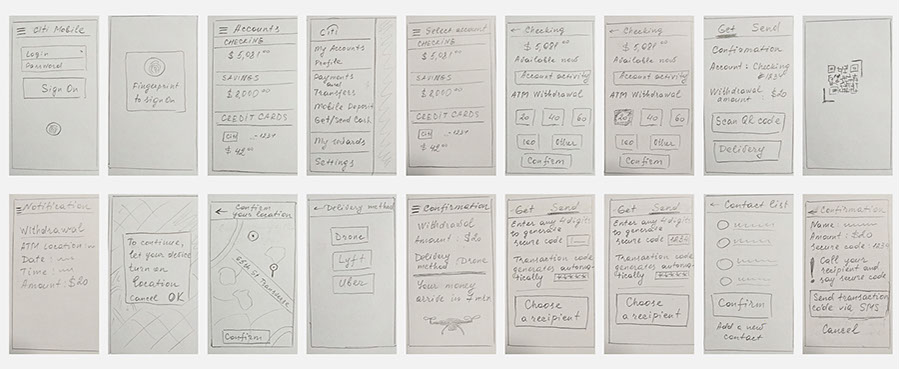 Citi Mobile
Login
Password
Sign On
Fingerprint
to sign On
Accounts
CHECKING
$ 5,081
SAVINGS
$ 2000 00
CREDIT CARDS
Citi ..-1234
$ 42 00
Citi
My Accounts
Profile
Payments
and
Transfers
Mobile Deposit
Get/Send Cash
My rewards
Settings
Select account
CHECKING
$ 5,081
SAVINGS
$ 2000 00
CREDIT CARDS
Citi ..-1234
$ 42 00
← Checking
$ 5,081 00
Available now
Account activity
ATM Withdrawal
20 40 60
100 Other
Confirm
← Checking
$ 5,081 00
Available now
Account activity
ATM Withdrawal
20 40 60
100 Other
Confirm
Get Send
Confirmation
Account: Checking
Withdrawal
amount: $20
Scan QR code
Delivery
Notification
Withdrawal
ATM Location:
Date:
Time:
Amount: $20
To continue,
let your device
turn on
location
Cancel OK
← Confirm
your location
Confirm
← Delivery method
Drone
Lyft
Uber
Confirmation
Withdrawal
Amount: $20
Delivery
method: Drone
Your money
arrive in 7 min
Get Send
Enter any 4 digits
to generate
secure code
Transaction
code
generates automa-
tically *****
Choose
a recipient
Get Send
Enter any 4 digits
to generate
secure code 1234
Transaction
code
generates automa-
tically *****
Choose
a recipient
← Contact list
Confirm
Add a new
contact
Confirmation
Name:
Amount: $20
Secure code: 1230
! Call your
recipient and
say secure code
Send transaction
code via SMS
Cancel